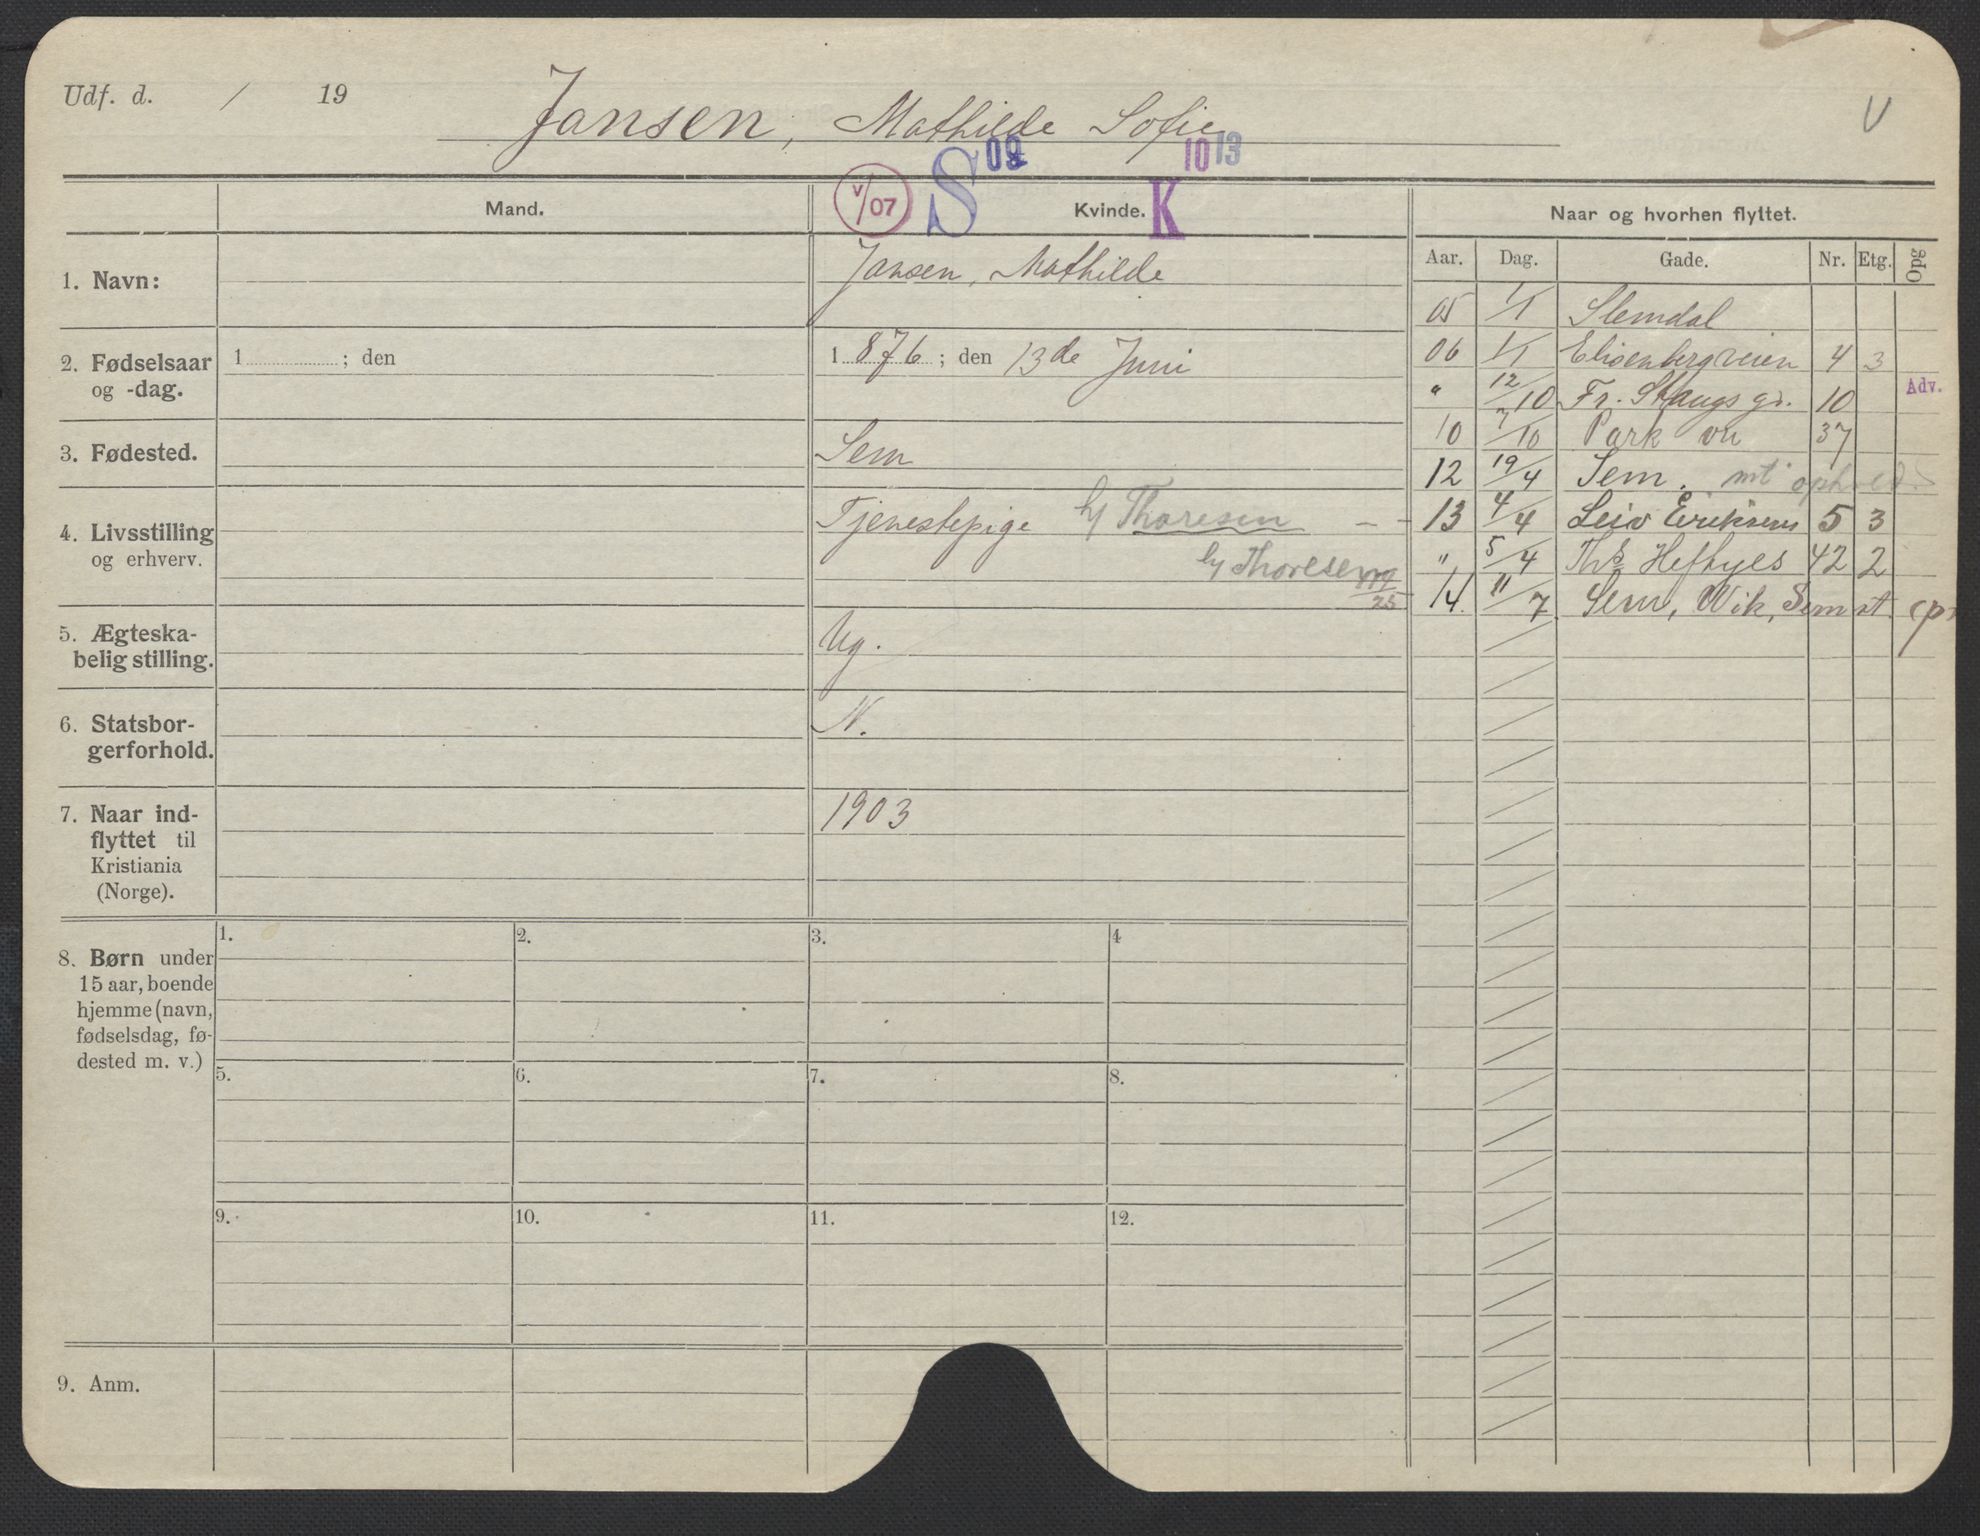 Udf. d. / 19
Jansen, Mathilde Sofie
V
09 10 13
V/07 S K
Mand. Kvinde. Naar og hvorhen flyttet.
Aar. Dag. Gade. Nr. Etg. Opg
1. Navn: Jansen, Mathilde
2. Fødselsaar og -dag. 1 ; den 1 876 ; den 13de Juni
3. Fødested. Sem
4. Livsstilling og erhverv. Tjenestepige h/ Thoresen
h/ Thoresen
5. Ægteska-
belig stilling. Ug.
6. Statsbor-
gerforhold. N.
7. Naar ind-
flyttet til
Kristiania
(Norge).
1903
05 1/1 Slemdal
06 1/1 Elisenbergveien 4 3
" 12/10 Fr. Stangs gd. 10 Adv.
10 7/10 Park vn 37
12 19/4 Sem. mt ophold
13 4/4 Leiv Eriksens 5 3
" 5/4 Ths Heftyes 42 2
14 11/7 Sem, Wik, Sem st.
8. Børn under
15 aar, boende
hjemme (navn,
fødselsdag, fø-
dested m. v.)
1. 2. 3. 4
5. 6. 7. 8.
9. 10. 11. 12.
9. Anm.